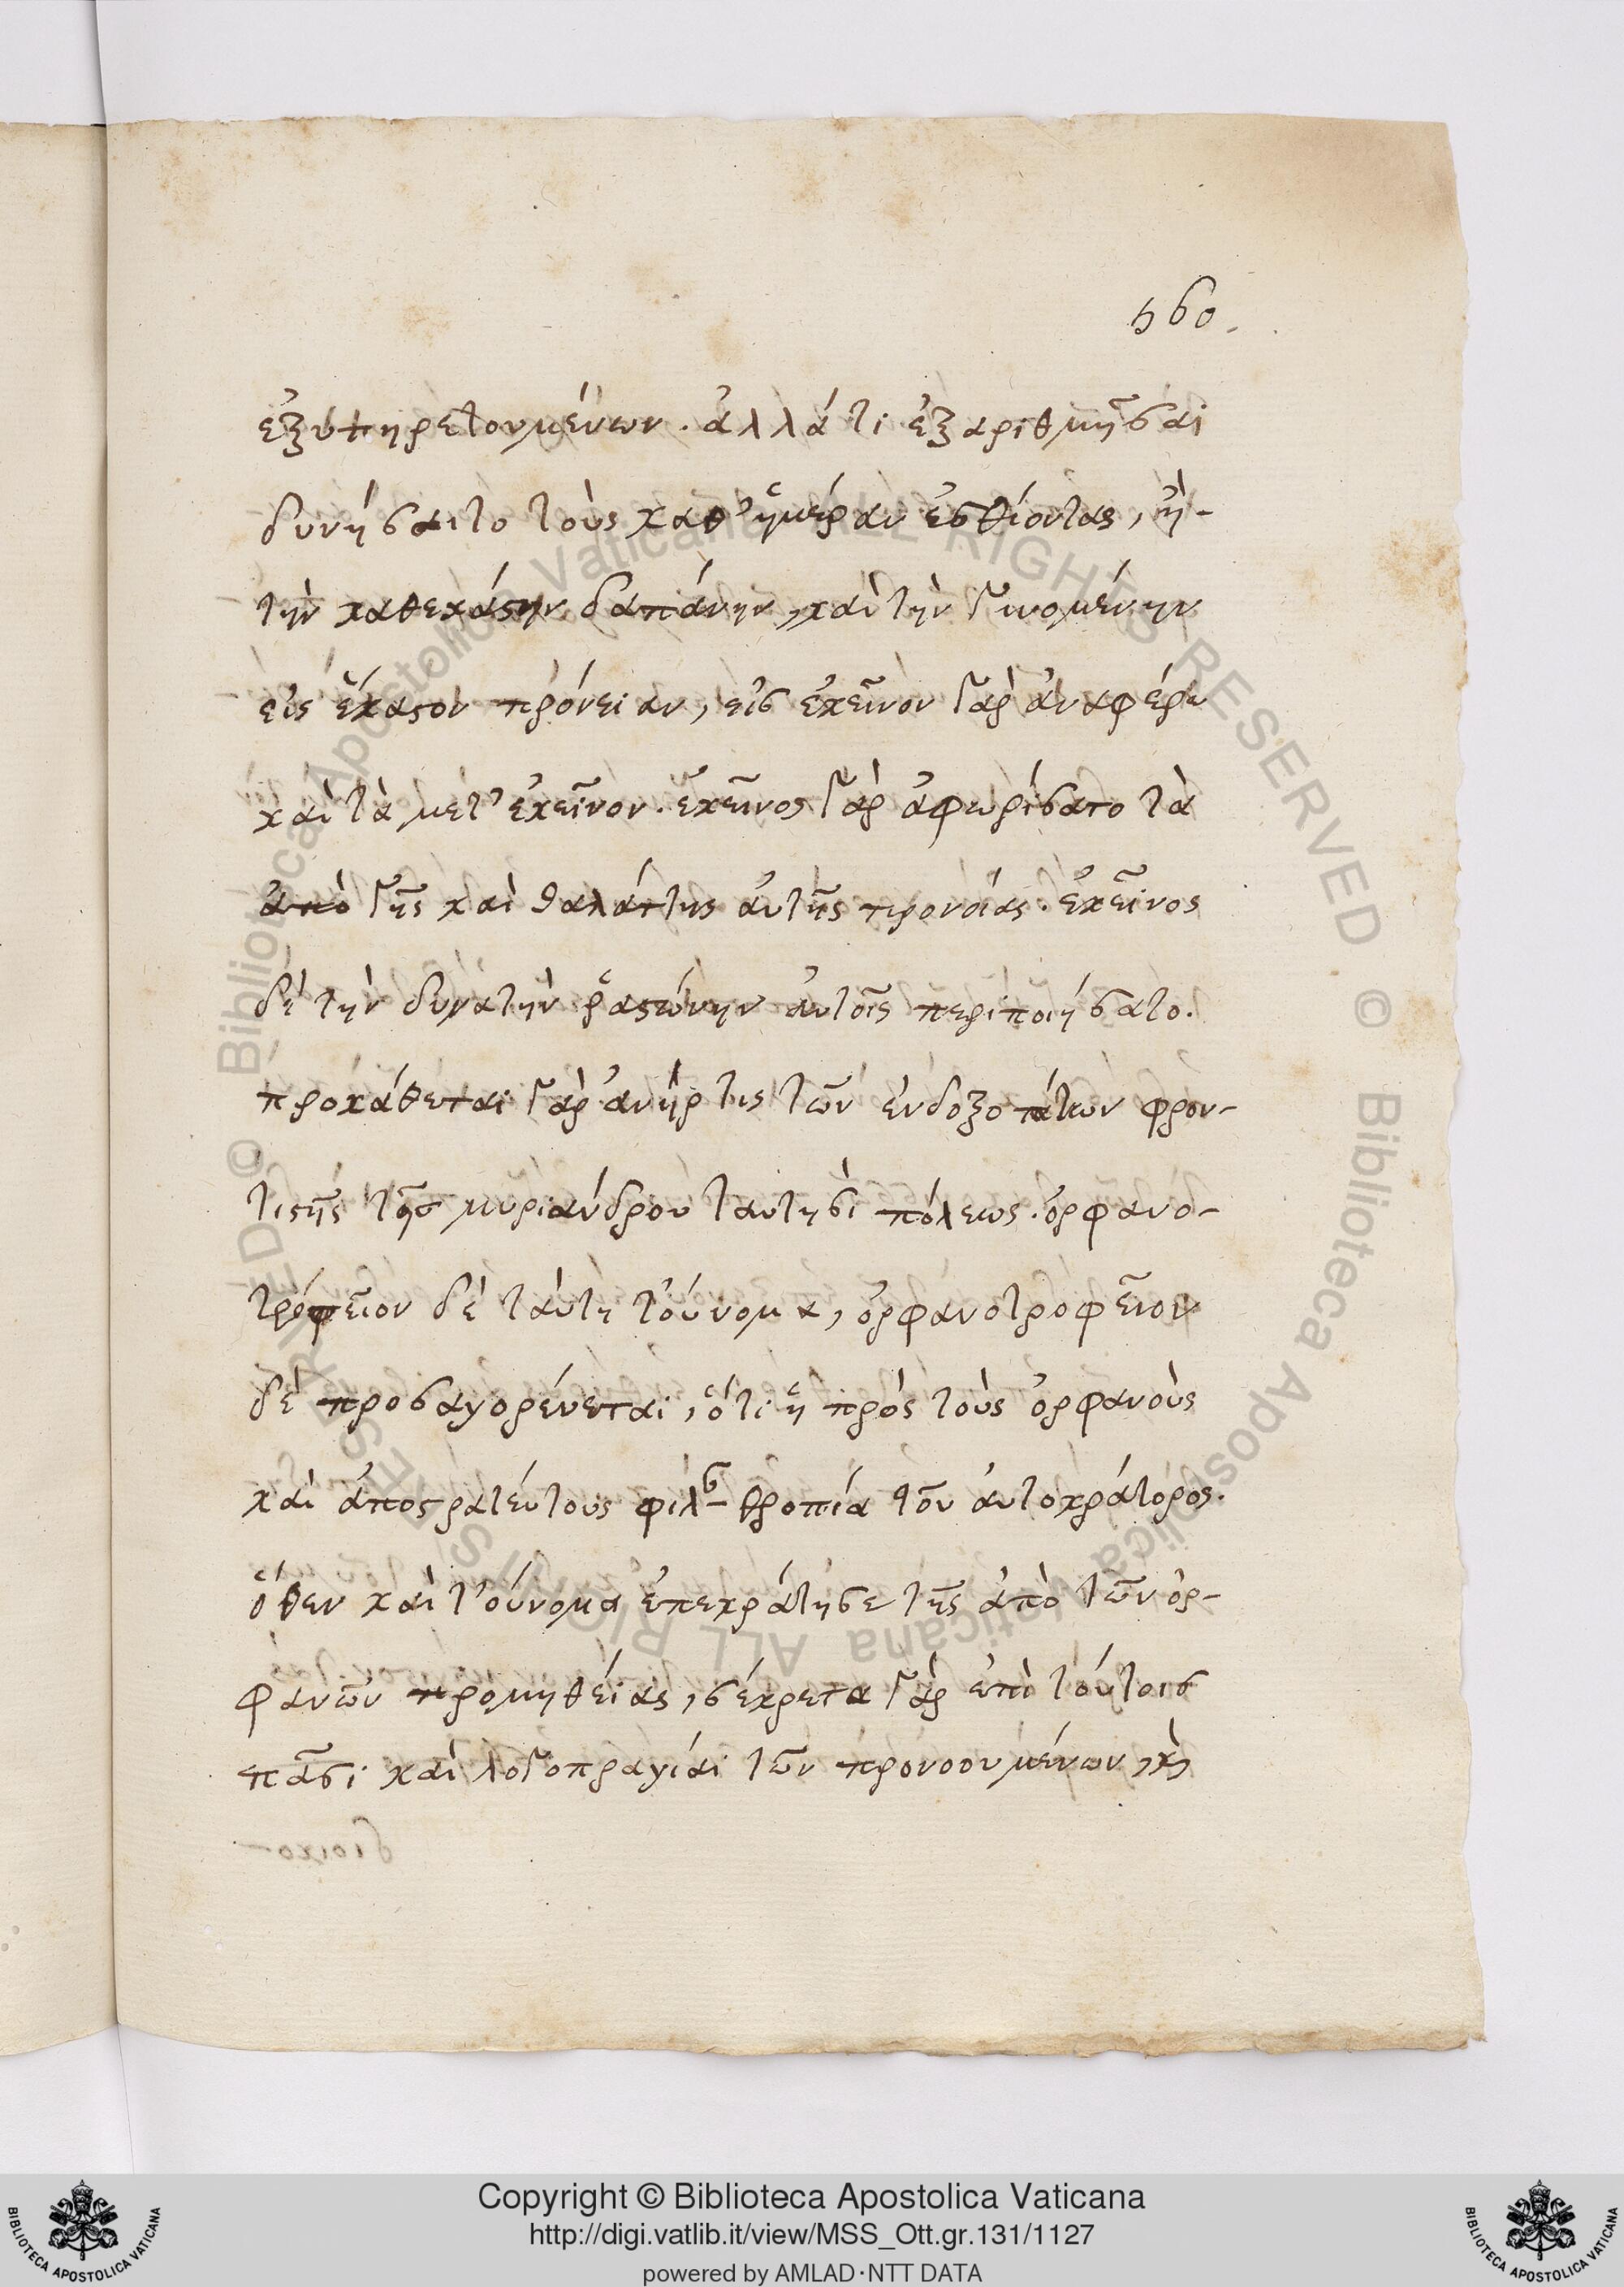 560.
ἐξυπηρετουμένων. ἀλλά τί ἐξαριθμῆσαι
δυνήσαιτο τοὺς καθ' ἡμέραν ἐσθίοντας, ἢ-
τὴν καθεκάστην δαπάνην, καὶ τὴν γινομένην
εἰς ἕκαστον πρόνειαν, εἰς ἐκεῖνον γὰρ ἀναφέρω
καὶ τὰ μετ' ἐκεῖνον. ἐκεῖνος γὰρ ἀφωρίσατο τὰ
ἀπὸ γῆς καὶ θαλάττης αὐτῆς προνοίας. ἐκεῖνος
δὲ τὴν δυνατὴν ῥαστώνην αὐτοῖς περιποιήσατο.
προκάθεται γὰρ ἀνήρ τις τῶν ἐνδοξοτάτων φρον-
τιστὴς τῆς μυριάνδρου ταυτησὶ πόλεως. ὀρφανο-
τρόφεῖον δὲ ταύτη τοὔνομα, ὀρφανοτροφεῖον
δὲ προσαγορέυεται, ὅτι ἡ πρὸς τοὺς ὀρφανοὺς
καὶ ἀποστρατεύτους φιλανθροπία τοῦ αὐτοκράτορος.
ὅθεν καὶ τ'οὔνομα ἐπεκράτησε τῆς ἀπὸ τῶν ὀρ-
φανῶν προμηθείας, σέκρετα γὰρ ἐπὶ τούτοις
πᾶσι καὶ λογοπραγίαι τῶν προνοουμένων, κ̀
Copyright © Biblioteca Apostolica Vaticana
http://digi.vatlib.it/view/MSS_Ott.gr.131/1127
powered by AMLAD·NTT DATA
BIBLIOTECA APOSTOLICA VATICANA
BIBLIOTECA APOSTOLICA VATICANA
© Biblioteca Apostolica Vaticana ALL RIGHTS RESERVED © Biblioteca Apostolica Vaticana ALL RIGHTS RESERVED